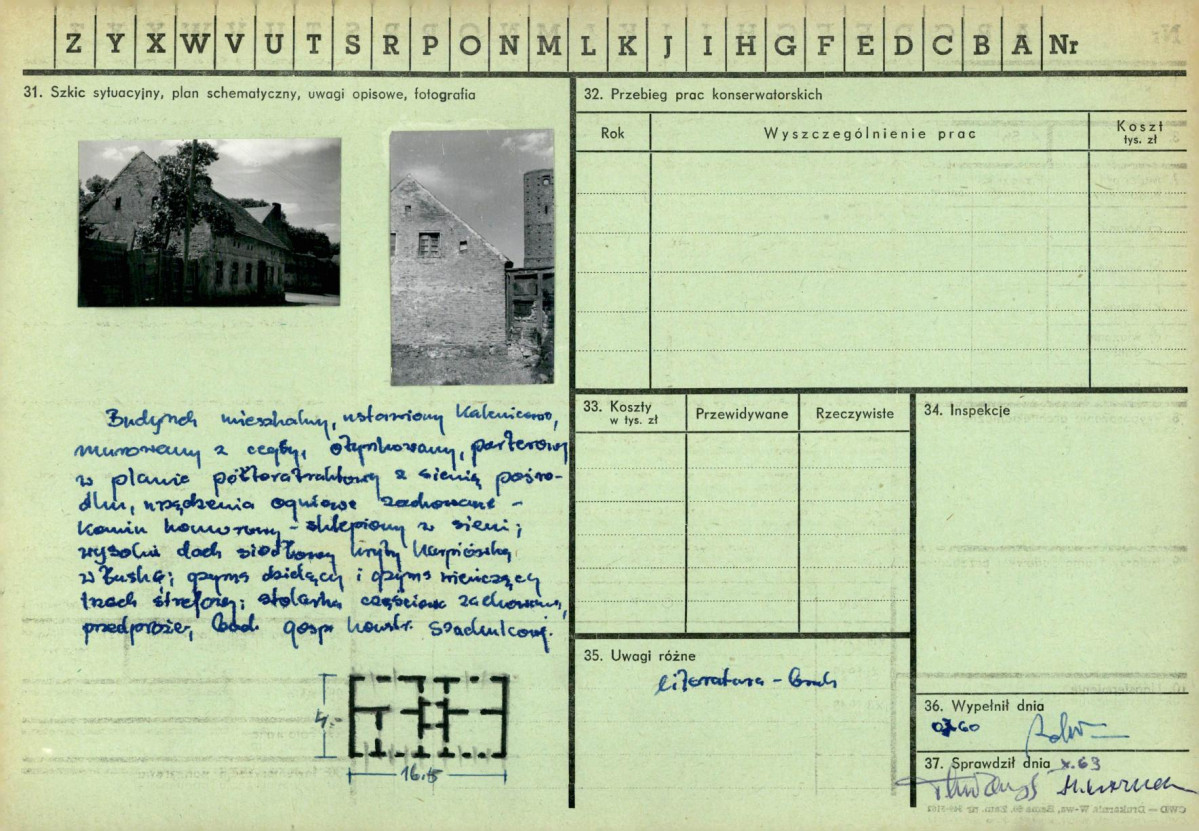 Z Y X W V U T S R P O N M L K J I H G F E D C B A Nr
31. Szkic sytuacyjny, plan schematyczny, uwagi opisowe, fotografia
Budynek mieszkalny, ustawiony kalenicowo,
murowany z cegły, otynkowany, parterowy
w planie półtoratraktowy z sienią pośro-
dku, urządzenia ogniowe zachowane -
komin komorowy - sklepiony w sieni;
wysoki dach siodłowy kryty karpiówką
w łuskę; gzyms dzielący i gzyms wieńczący
trzech strefowy; stolarka częściowo zachowana,
przedproże, bud. gosp. konstr. szachulcowej.
4.-
16.5
32. Przebieg prac konserwatorskich
Rok
Wyszczególnienie prac
Koszt
tys. zł
33. Koszty
w tys. zł
Przewidywane
Rzeczywiste
34. Inspekcje
35. Uwagi różne
literatura - brak
36. Wypełnił dnia
37. Sprawdził dnia X.63